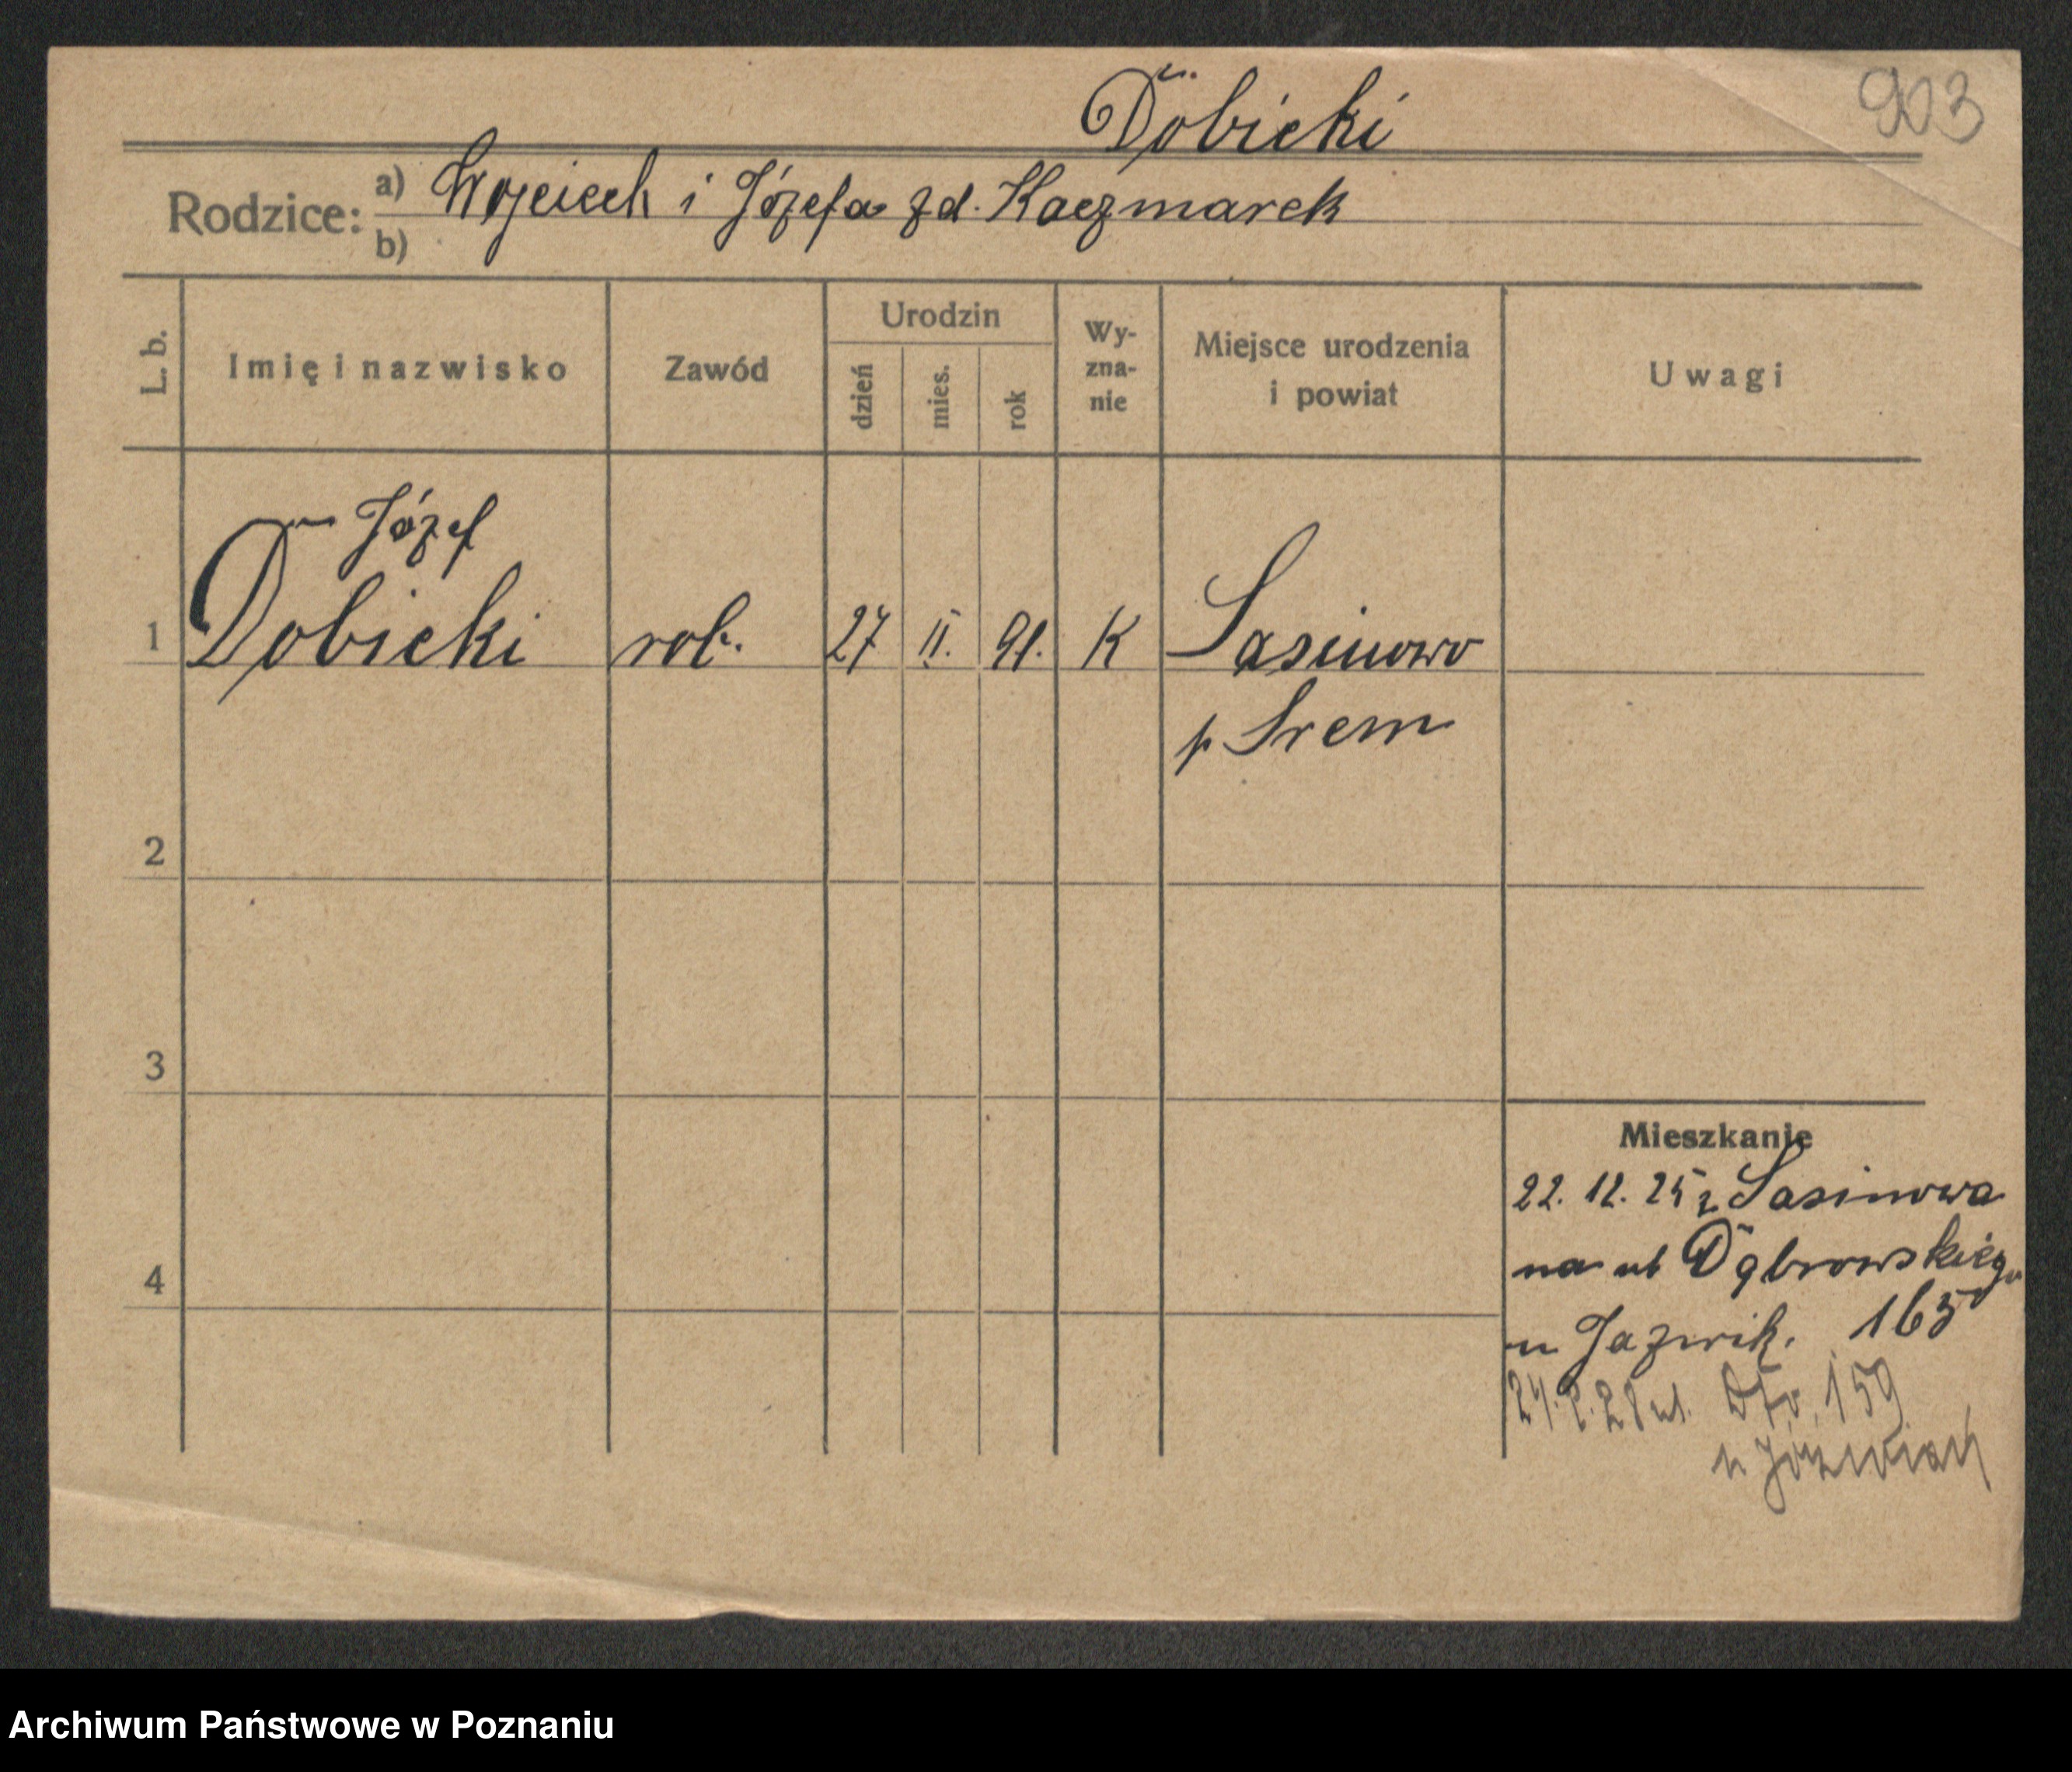 903
Dobicki
Rodzice: a) Wojciech i Józefa zd. Kaczmarek
b)
L. b.
Imię i nazwisko
Zawód
Urodzin
dzień
mies.
rok
Wy-
zna-
nie
Miejsce urodzenia
i powiat
Uwagi
Józef
1 Dobicki rob. 27 II. 91. K Sasinowo
p Srem
2
3
4
Mieszkanie
22. 12. 25 z Sasinowa
na ul Dąbrowskiego
u 165
ul. 159
u
Archiwum Państwowe w Poznaniu